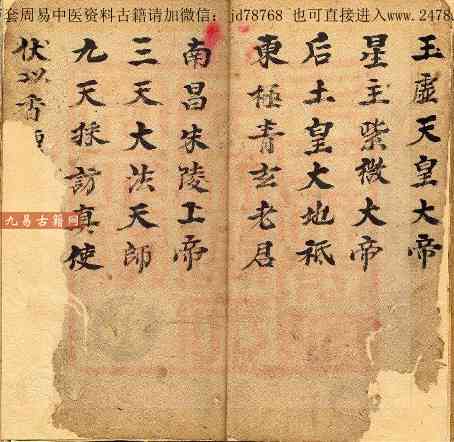 套周易中医资料古籍请加微信：jd78768 也可直接进入www.2478
玉虚天皇大帝
星主紫微大帝
后土皇大地祇
東極青玄老君
南昌朱陵上帝
三天大法天師
九天採訪真使
伏以香
九易古籍网